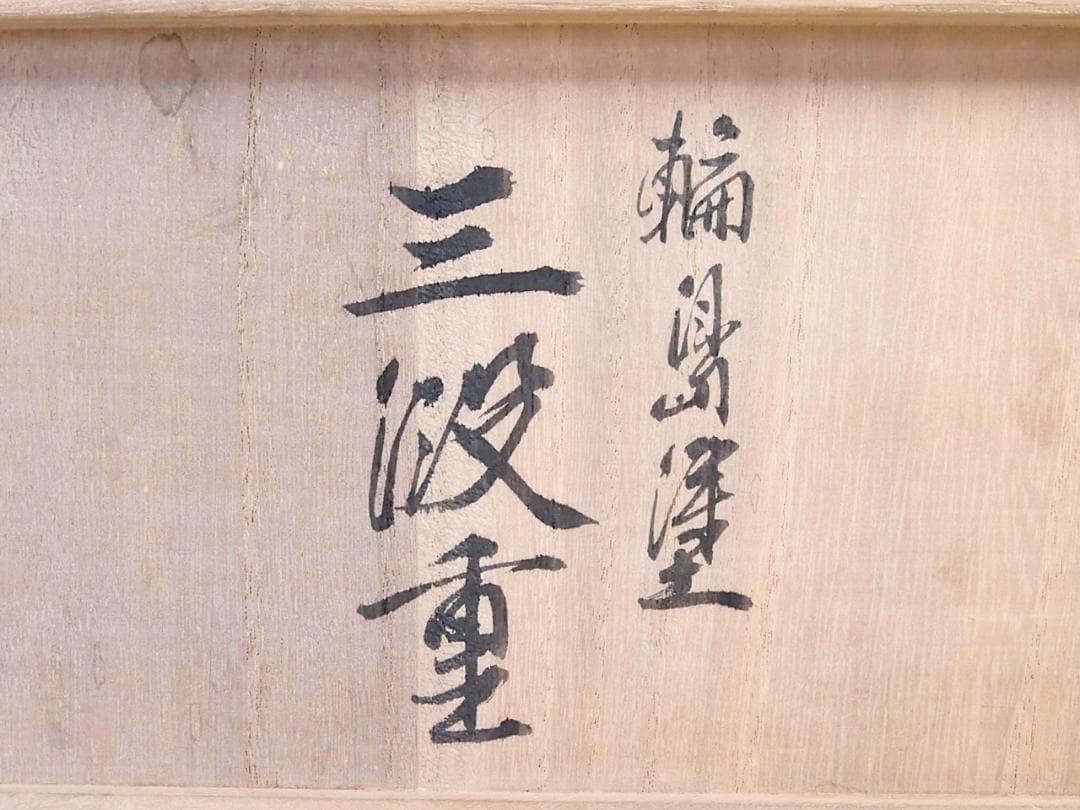 輪島塗
三段重